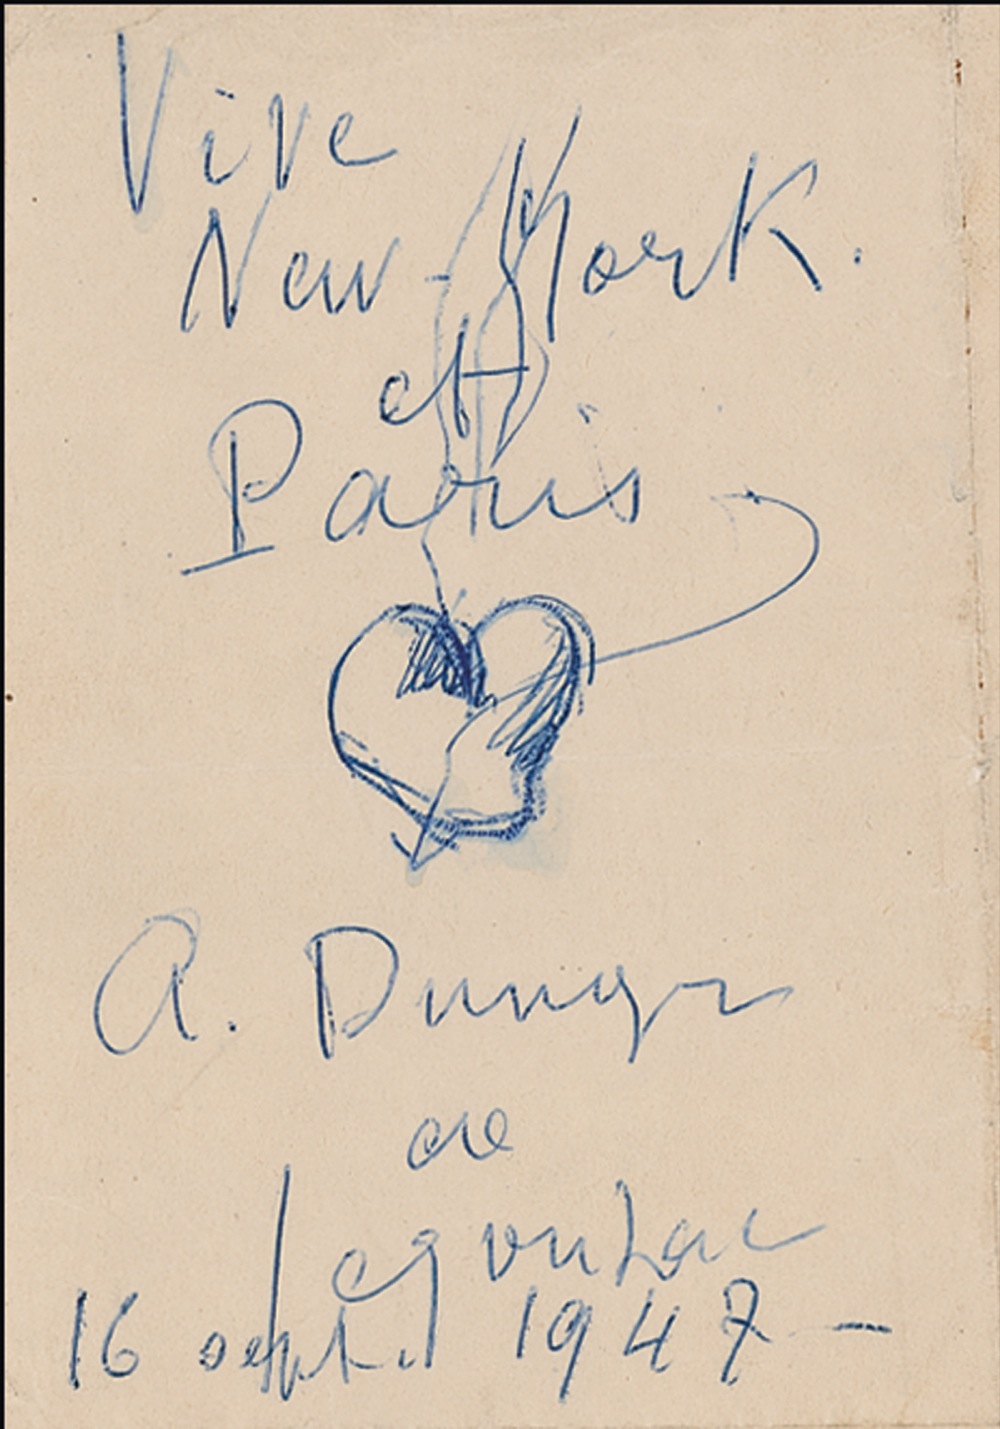 Vive
New-York.
et
Paris
A. Dunoyer
de
Segonzac
16 sept. 1947 —